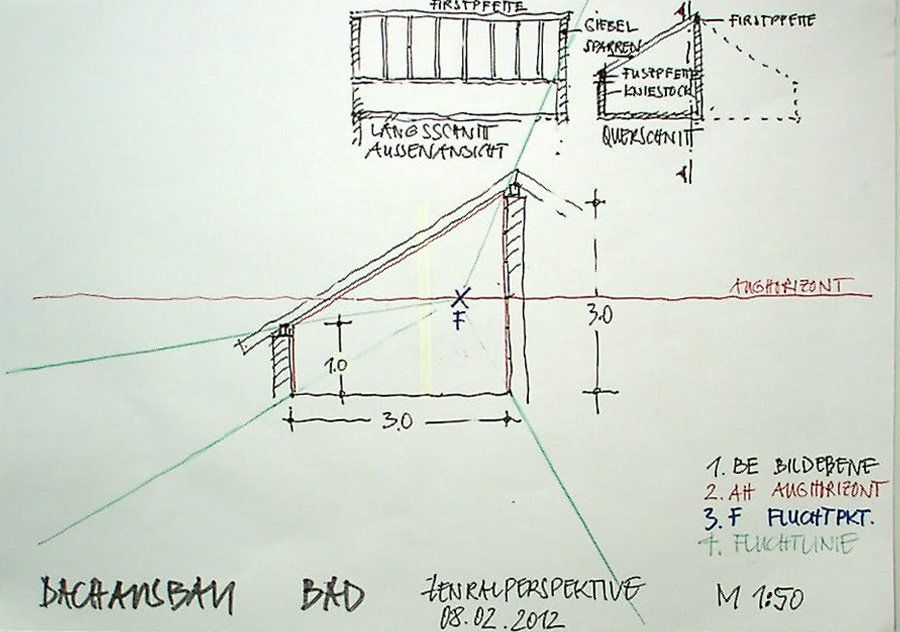 FIRSTPFETTE
GIEBEL
SPARREN
FIRSTPFETTE
FUSZPFETTE
KNIESTOCK
LÄNGSSCHNITT
AUSSENANSICHT
QUERSCHNITT
AUGHORIZONT
F
3.0
1.0
3.0
1. BE BILDEBENE
2. AH AUGHORIZONT
3. F FLUCHTPKT.
4. FLUCHTLINIE
DACHAUSBAU BAD ZENRALPERSPEKTIVE M 1:50
08.02.2012